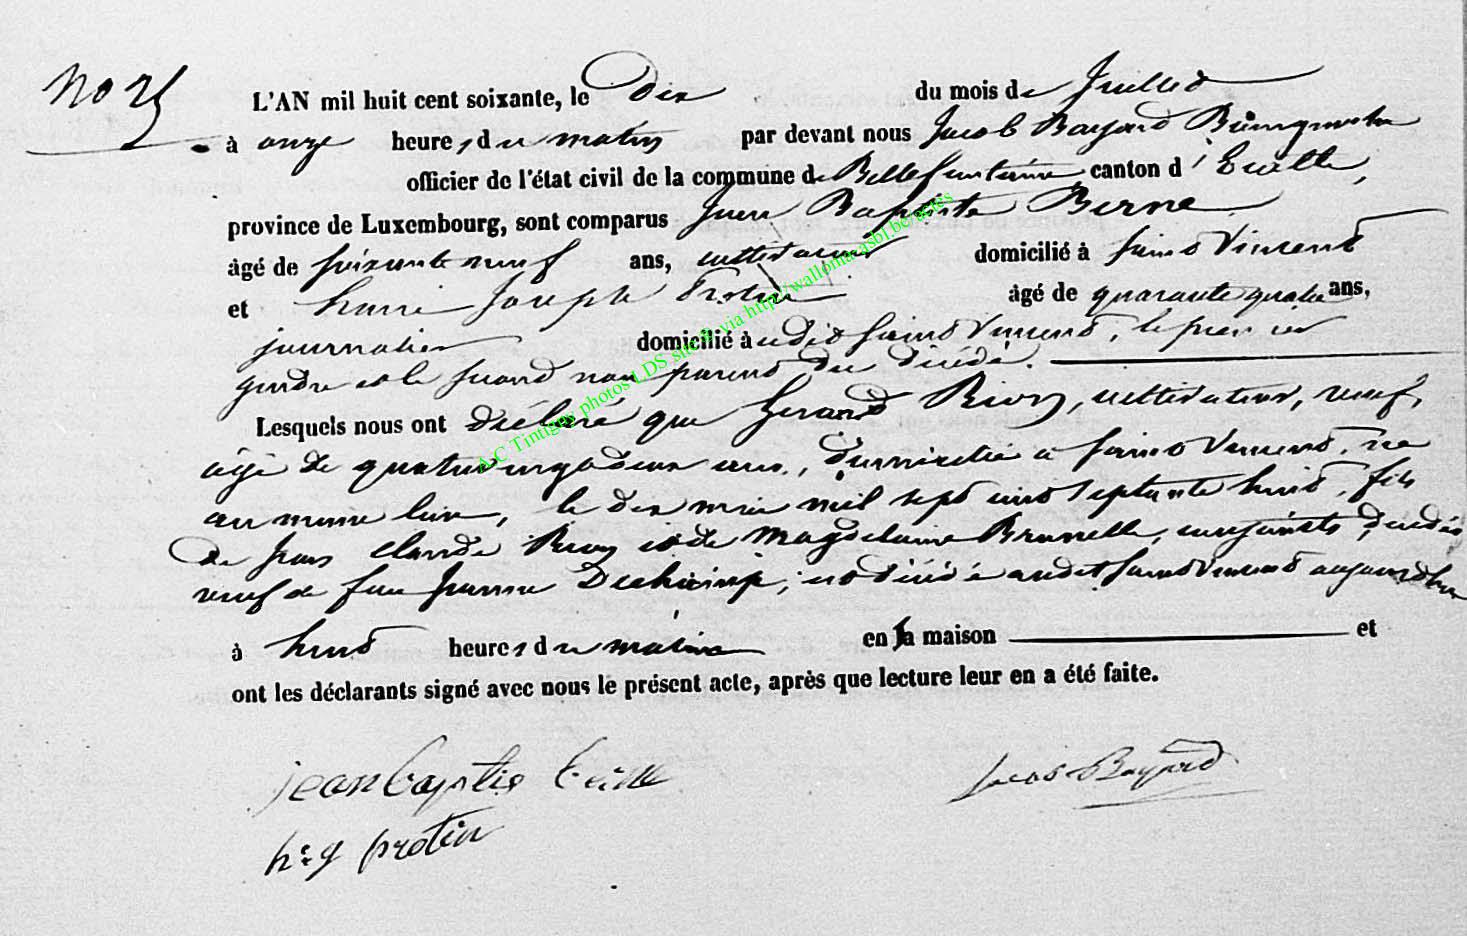 No 25
L'AN mil huit cent soixante, le Dix du mois de Juillet
à onze heures du matin par devant nous Jacob Bayard Bourgmestre
officier de l'état civil de la commune de Bellefontaine canton d'Etalle,
province de Luxembourg, sont comparus Jean Baptiste
âgé de soixante neuf ans, cultivateur domicilié à Saint Vincent
et henri Joseph Protin âgé de quarante quatre ans,
journalier domicilié à udit Saint Vincent, le premier
gendre et le second non parent du décédé.
Lesquels nous ont déclaré que Gerard Rion, cultivateur, veuf,
agé de quatre vingt deux ans, domicilié a Saint Vincent, né
au meme lieu, le dix mai mil sept cent septante huit, fils
de Jean Claude Rion et de Magdelaine Brunelle, conjoints, décédés
veuf de feu Jeanne est décédé audit Saint Vincent aujourdhui
à huit heures du matin en la maison et
ont les déclarants signé avec nous le présent acte, après que lecture leur en a été faite.
jean baptiste
Jacob Bayard
h.g protin
A.C Tintigny photos LDS site B via http://wallonia-asbl.be/actes